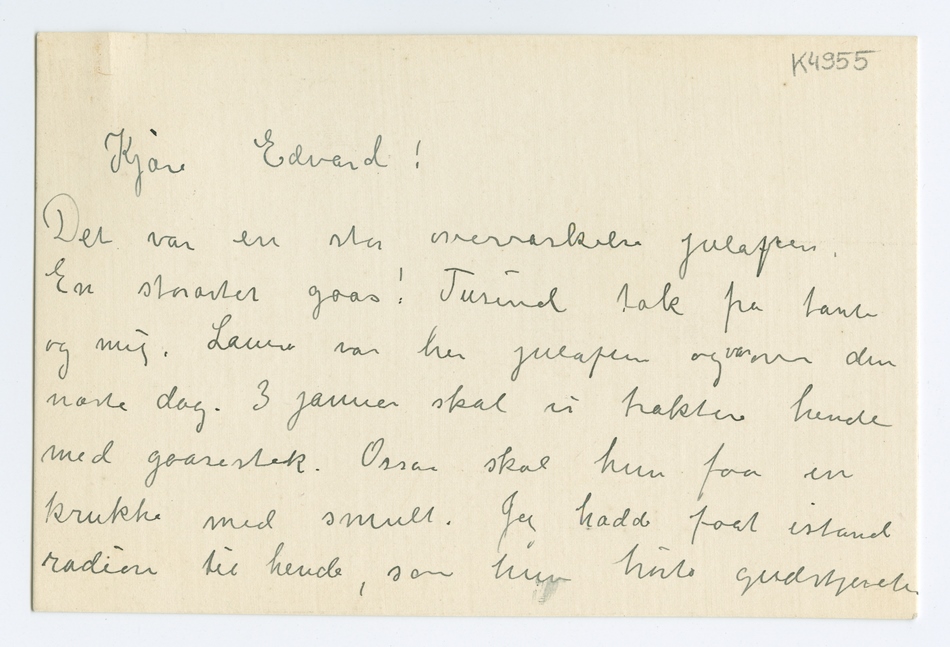 K4955
Kjære Edvard!
Det var en stor overraskelse julaften.
En storartet gaas! Tusind tak fra tante
og mig. Laura var her julaften og var over den
næste dag. 3 januer skal vi traktere hende
med gaasestek. Ossaa skal hun faa en
krukke med smult. Jeg hadde faat istand
radioen til hende, saa hun hörte gudstjeneste